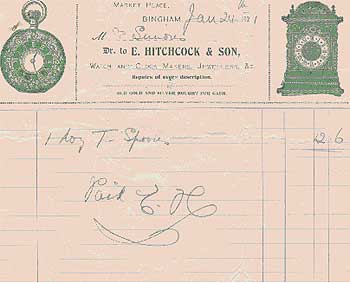 MARKET PLACE,
BINGHAM, Jan 24th 1921
M
Dr. to E. HITCHCOCK & SON,
WATCH AND CLOCK MAKERS, JEWELLERS, &c
Repairs of every description.
OLD GOLD AND SILVER BOUGHT FOR CASH.
1 doz T Spoons 2 6
Paid E. H